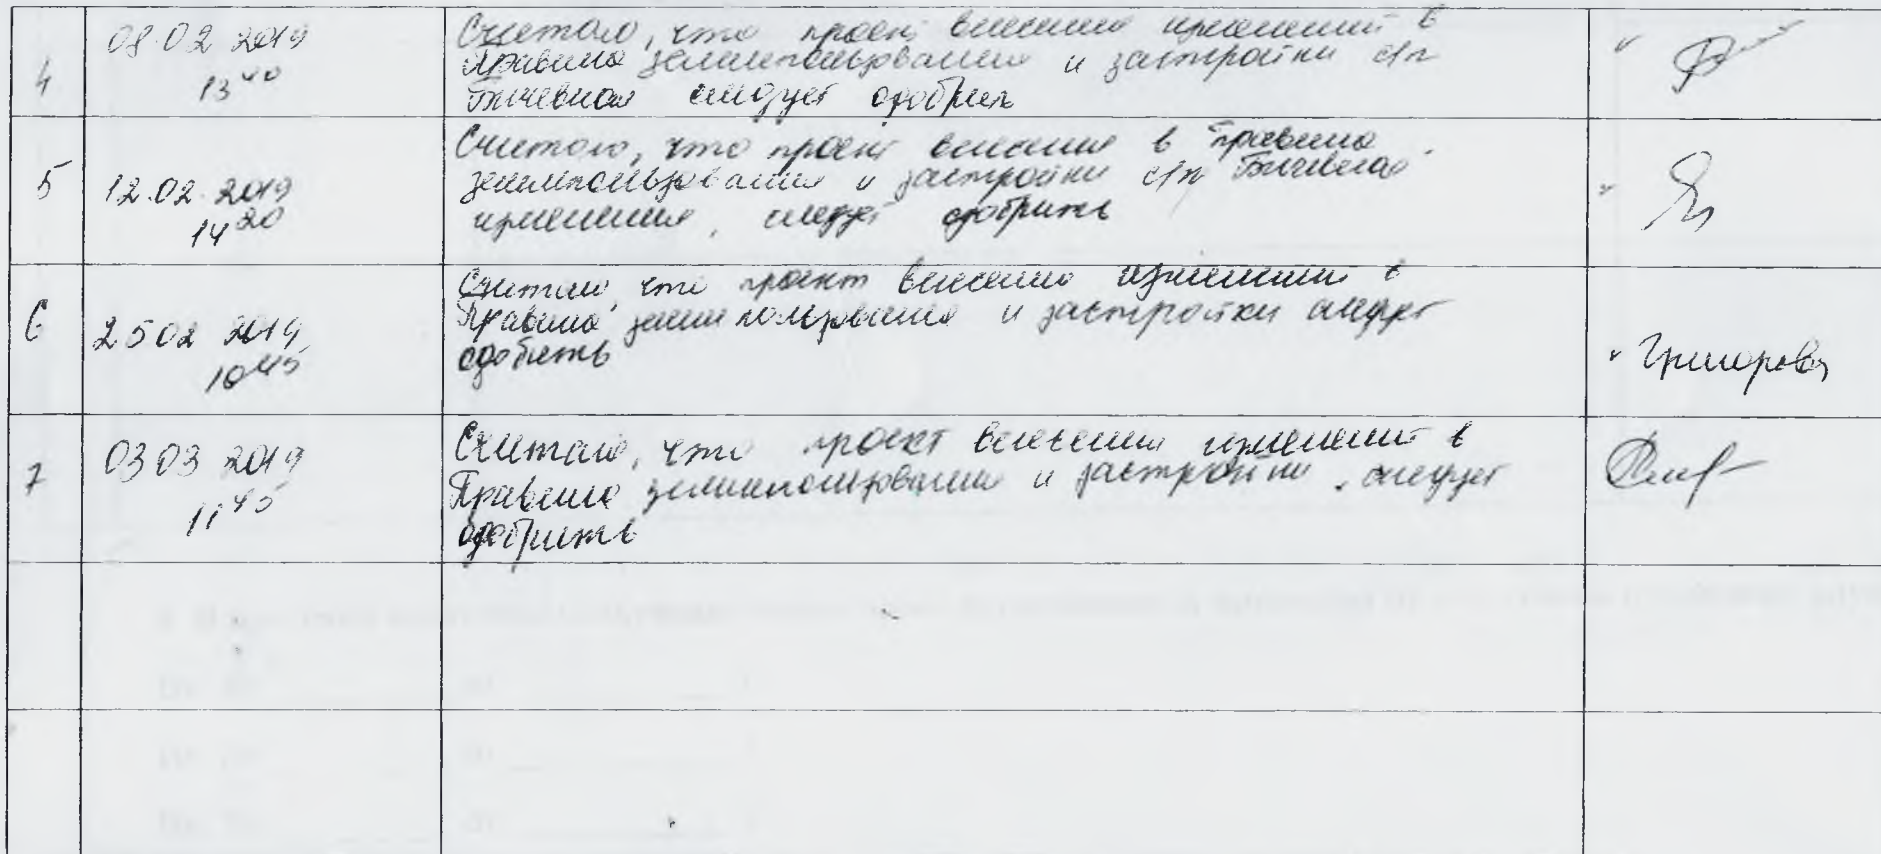 4
08.02 2019
13 40
Считаю, что проект внесения изменений в
Правила землепользования и застройки с/п
Бичевная следует одобрить
5
12.02.2019
14 20
Считаю, что проект внесения в Правила
землепользования и застройки с/п Бичевная
изменения, следует одобрить
6
25 02 2019
10 45
Считаю, что проект внесения изменений в
Правила землепользования и застройки следует
одобрить
Григорова
7
03 03 2019
11 45
Считаю, что проект внесения изменений в
Правила землепользования и застройки, следует
одобрить